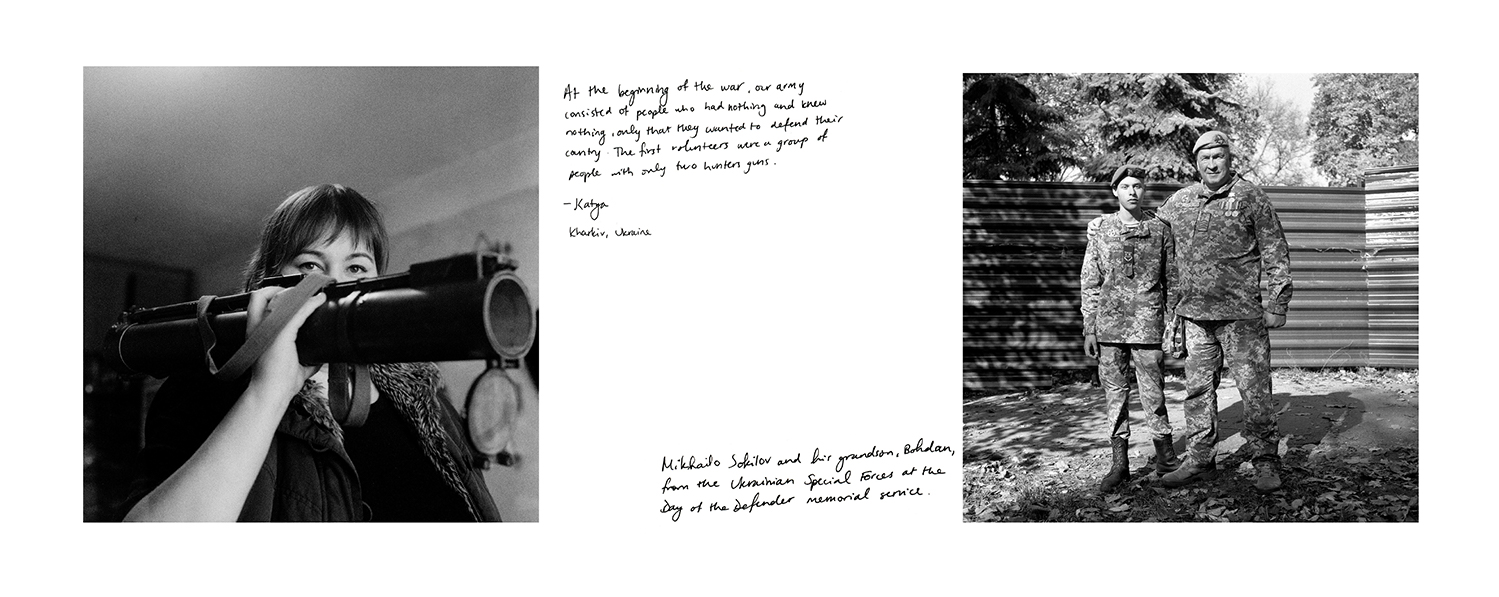 At the beginning of the war, our army
consisted of people who had nothing and knew
nothing, only that they wanted to defend their
cantry. The first volunteers were a group of
people with only two hunters guns.
– Katya
Kharkiv, Ukraine
Mikhailo Sokilov and his grandson, Bohdan,
from the Ukrainian Special Forces at the
Day of the Defender memorial service.